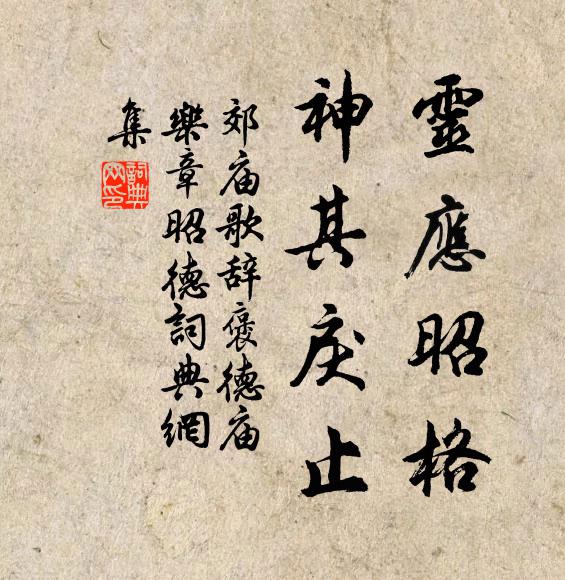 靈應昭格
神其戾止
郊庙歌辞褒德庙
樂章昭德詞典網
集
詞典网印